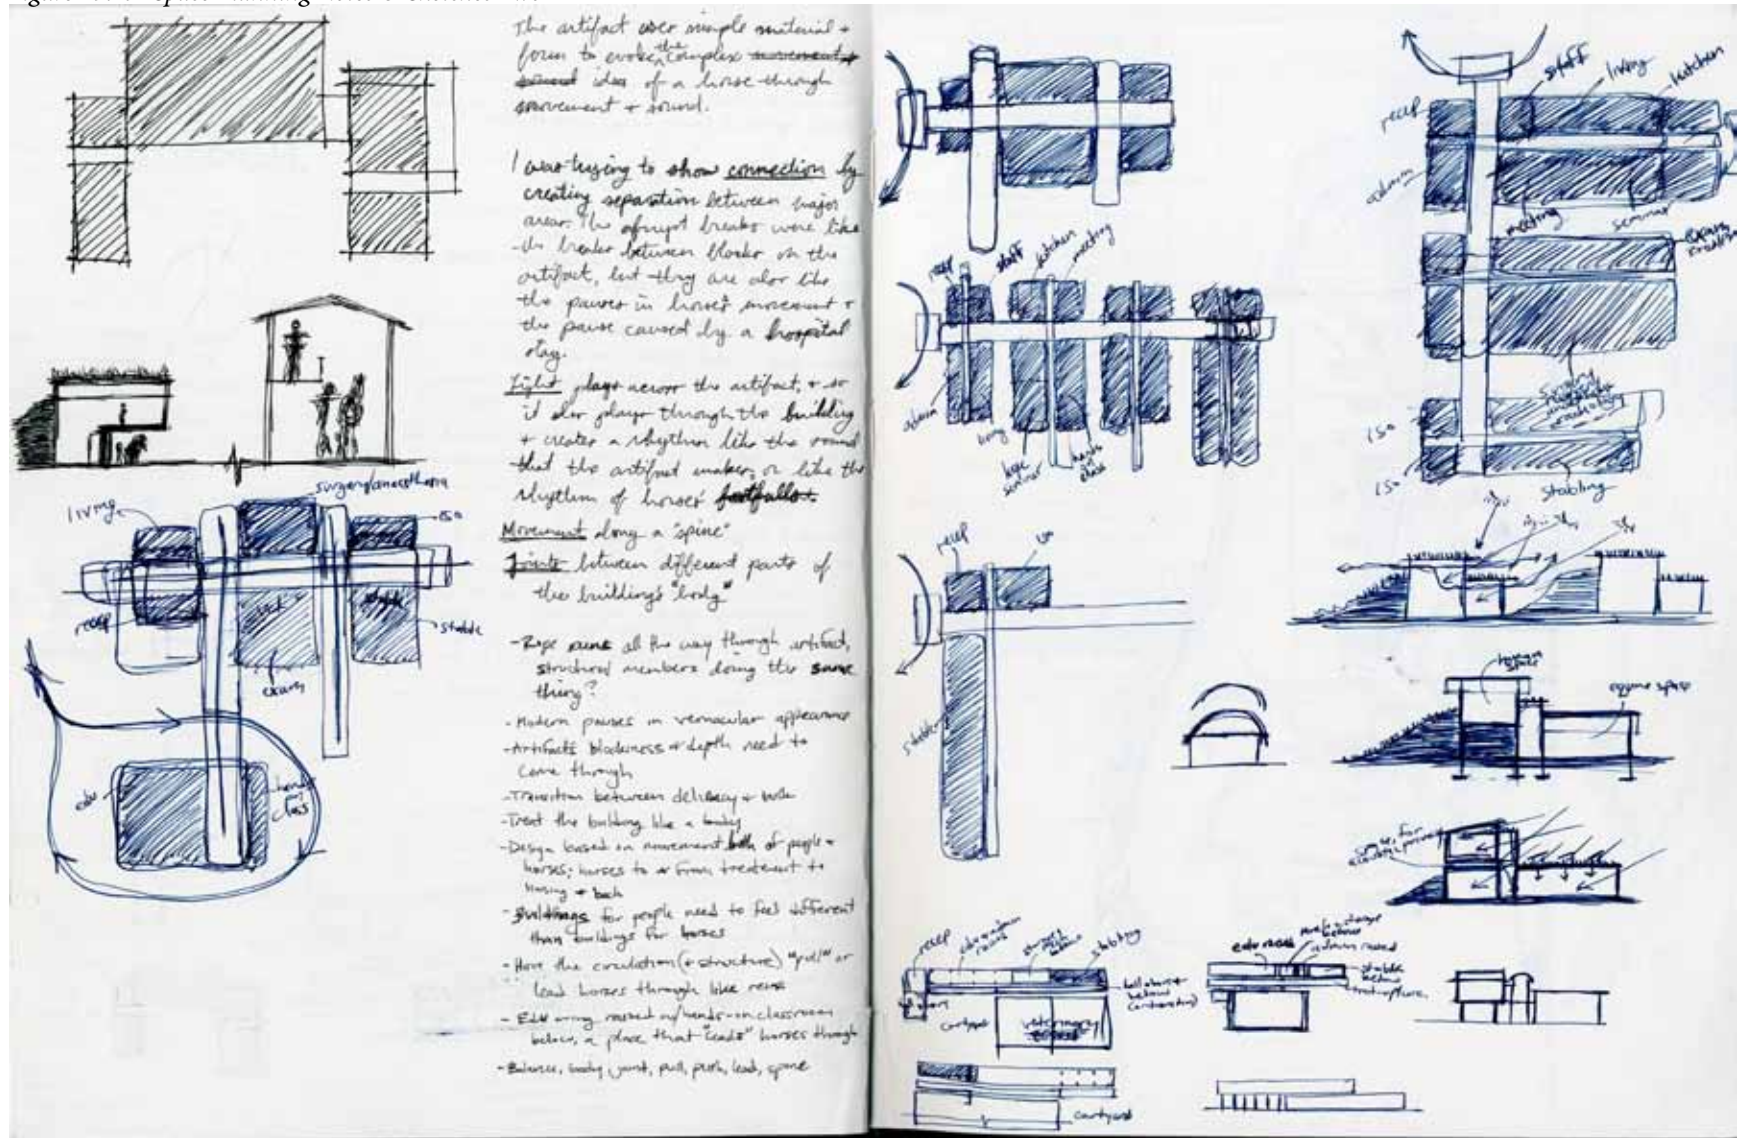 The artifact uses simple material +
form to evoke the complex movement +
sound idea of a horse through
movement + sound.
I was trying to show connection by
creating separation between major
areas. The abrupt breaks were like
the breaks between blocks on the
artifact, but they are also like
the pauses in horses' movement +
the pause caused by a hospital
stay.
Light plays across the artifact, + so
it also plays through the building
+ creates a rhythm like the sound
that the artifact makes, or like the
rhythm of horses' footfalls.
Movement along a "spine"
Joints between different parts of
the building's "body"
- Rope runs all the way through artifact,
structural members doing the same
thing?
- Modern pauses in vernacular appearance
- Artifact's blockiness + depth need to
come through
- Transition between delicacy + bulk
- Treat the building like a body
- Design based on movement both of people +
horses; horses to + from treatment to
housing + back
- Buildings for people need to feel different
than buildings for horses
- Have the circulation (+ structure) "pull" or
lead horses through like reins
- Edu wing raised w/ hands-on classroom
below, a place that "leads" horses through
- Balance, body, joint, pull, push, lead, spine
living
surgery/anaesthesia
iso
recep
stable
exam
edu
hands
on
class
recep
staff
kitchen
meeting
admin
living
large
seminar
hands
on
class
recep
staff
living
kitchen
admin
meeting
seminar
iso
iso
stabling
recep
stable
human
space
equine space
space for
acoustic privacy
recep
stabling
courtyard
veterinary
courtyard
edu raised
admin raised
stable
below